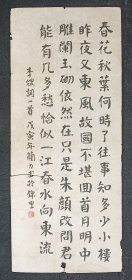 春花秋葉何時了往事知多少小樓
昨夜又東風故國不堪回首月明中
雕闌玉砌依然在只是朱顏改問君
能有幾多愁恰似一江春水向東流
李煜詞一首 戊寅年